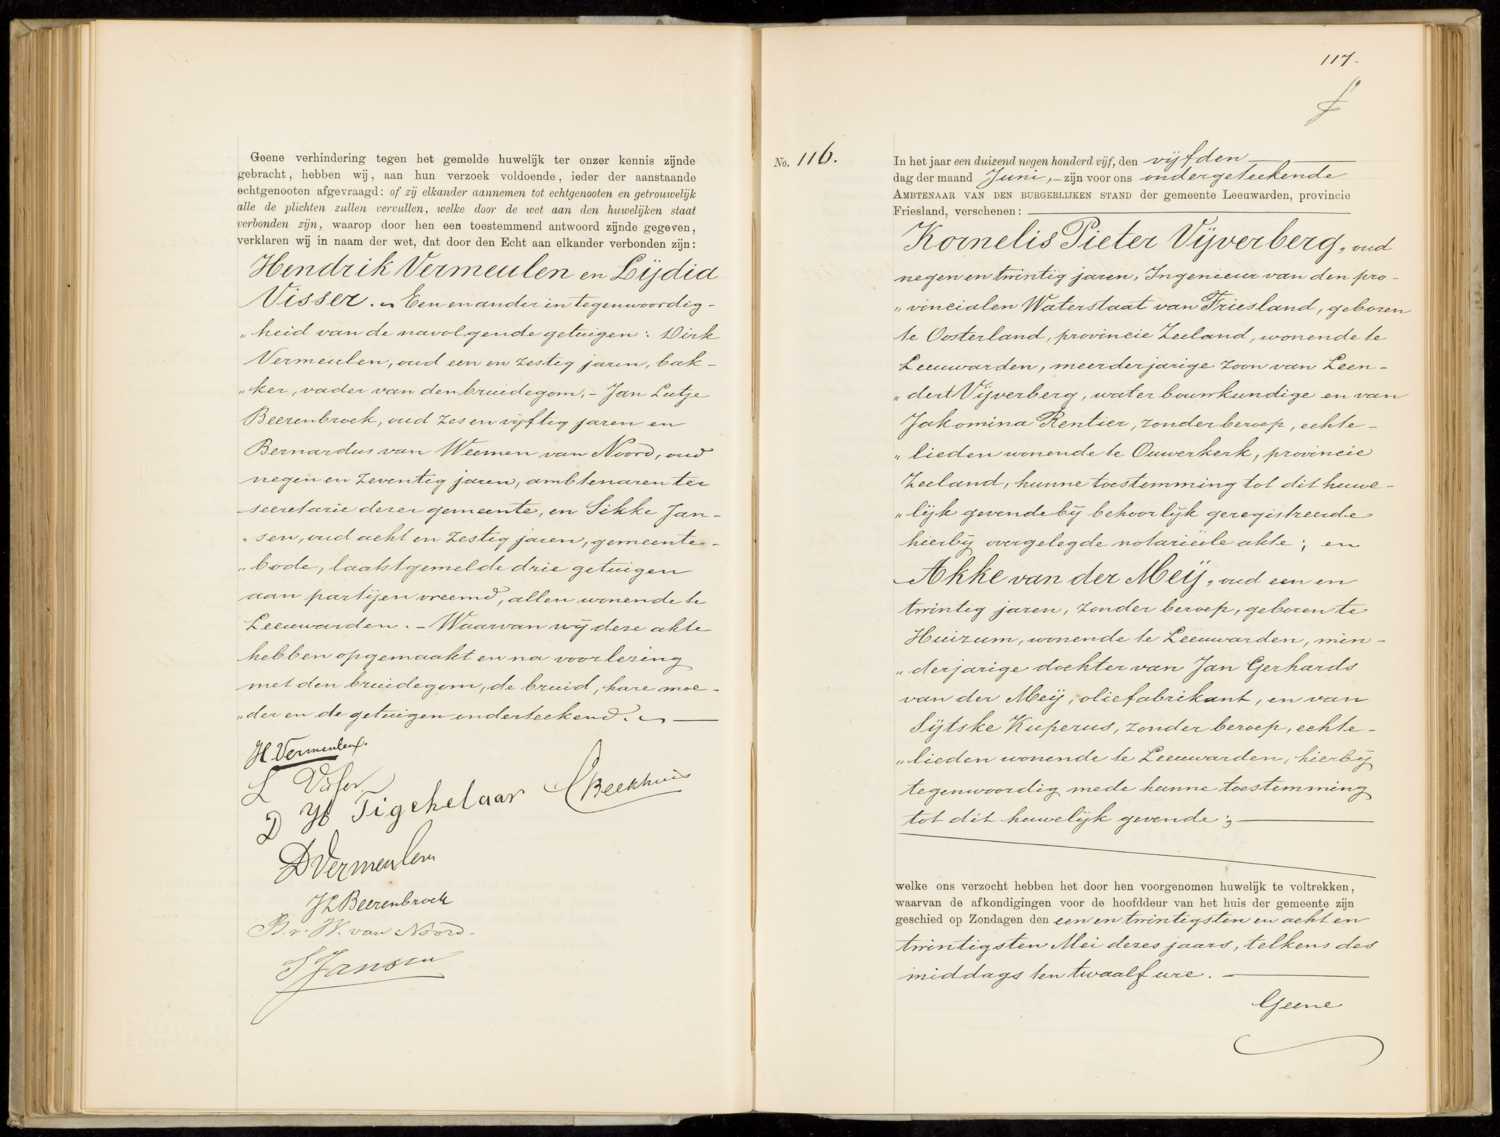 Geene verhindering tegen het gemelde huwelijk ter onzer kennis zijnde
gebracht, hebben wij, aan hun verzoek voldoende, ieder der aanstaande
echtgenooten afgevraagd: of zij elkander aannemen tot echtgenooten en getrouwelijk
alle de plichten zullen vervullen, welke door de wet aan den huwelijken staat
verbonden zijn, waarop door hen een toestemmend antwoord zijnde gegeven,
verklaren wij in naam der wet, dat door den Echt aan elkander verbonden zijn:
Hendrik Vermeulen en Lijdia
Visser. Een en ander in tegenwoordig-
„heid van de navolgende getuigen: Dirk
Vermeulen, oud een en zestig jaren, bak-
„ker, vader van den bruidegom, – Jan Lutje
Beerenbroek, oud zes en vijftig jaren en
Bernardus van Weemen van Noord, oud
negen en zeventig jaren, ambtenaren ter
secretarie dezer gemeente, en Sikke Jan-
„sen, oud acht en zestig jaren, gemeente-
„bode, laatstgemelde drie getuigen
aan partijen vreemd, allen wonende te
Leeuwarden. – Waarvan wij deze akte
hebben opgemaakt en na voorlezing
met den bruidegom, de bruid, hare moe-
„der en de getuigen onderteekend.
H. Vermeulen.
L Visser
D Tigchelaar CBeekhuis
DVermeulen
JLBeerenbroek
B. v. W. van Noord.
SJansen
117.
No. 116.
In het jaar een duizend negen honderd vijf, den vijfden
dag der maand Juni, – zijn voor ons ondergeteekende
AMBTENAAR VAN DEN BURGERLIJKEN STAND der gemeente Leeuwarden, provincie
Friesland, verschenen:
Kornelis Pieter Vijverberg, oud
negen en twintig jaren, Ingenieur van den pro-
„vincialen Waterstaat van Friesland, geboren
te Oosterland, provincie Zeeland, wonende te
Leeuwarden, meerderjarige zoon van Leen-
„dert Vijverberg, waterbouwkundige en van
Jakomina Rentier, zonder beroep, echte-
„lieden wonende te Ouwerkerk, provincie
Zeeland, hunne toestemming tot dit huwe-
„lijk gevende bij behoorlijk geregistreerde
hierbij overgelegde notarieele akte; en
Akke van der Meij, oud een en
twintig jaren, zonder beroep, geboren te
Huizum, wonende te Leeuwarden, min-
„derjarige dochter van Jan Gerhards
van der Meij, oliefabrikant, en van
Sijtske Kuperus, zonder beroep, echte-
„lieden wonende te Leeuwarden, hierbij
tegenwoordig mede hunne toestemming
tot dit huwelijk gevende;
welke ons verzocht hebben het door hen voorgenomen huwelijk te voltrekken,
waarvan de afkondigingen voor de hoofddeur van het huis der gemeente zijn
geschied op Zondagen den een en twintigsten en acht en
twintigsten Mei dezes jaars, telkens des
middags ten twaalf ure.
Geene